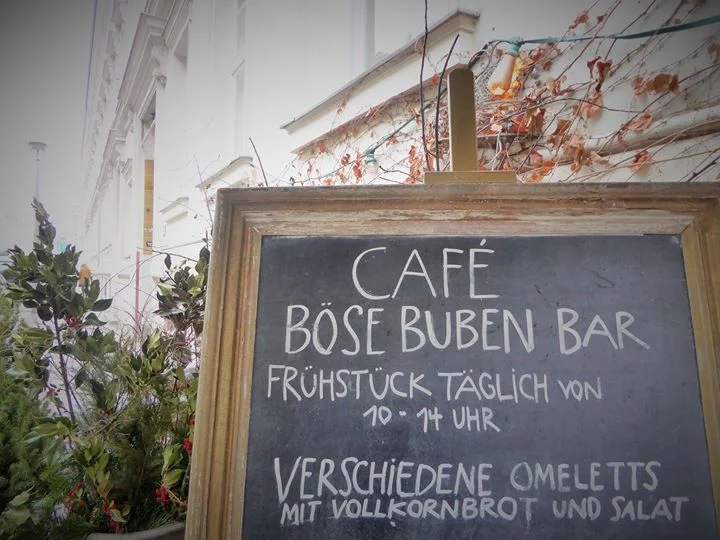 CAFÉ
BÖSE BUBEN BAR
FRÜHSTÜCK TÄGLICH VON
10 - 14 UHR
VERSCHIEDENE OMELETTS
MIT VOLLKORNBROT UND SALAT